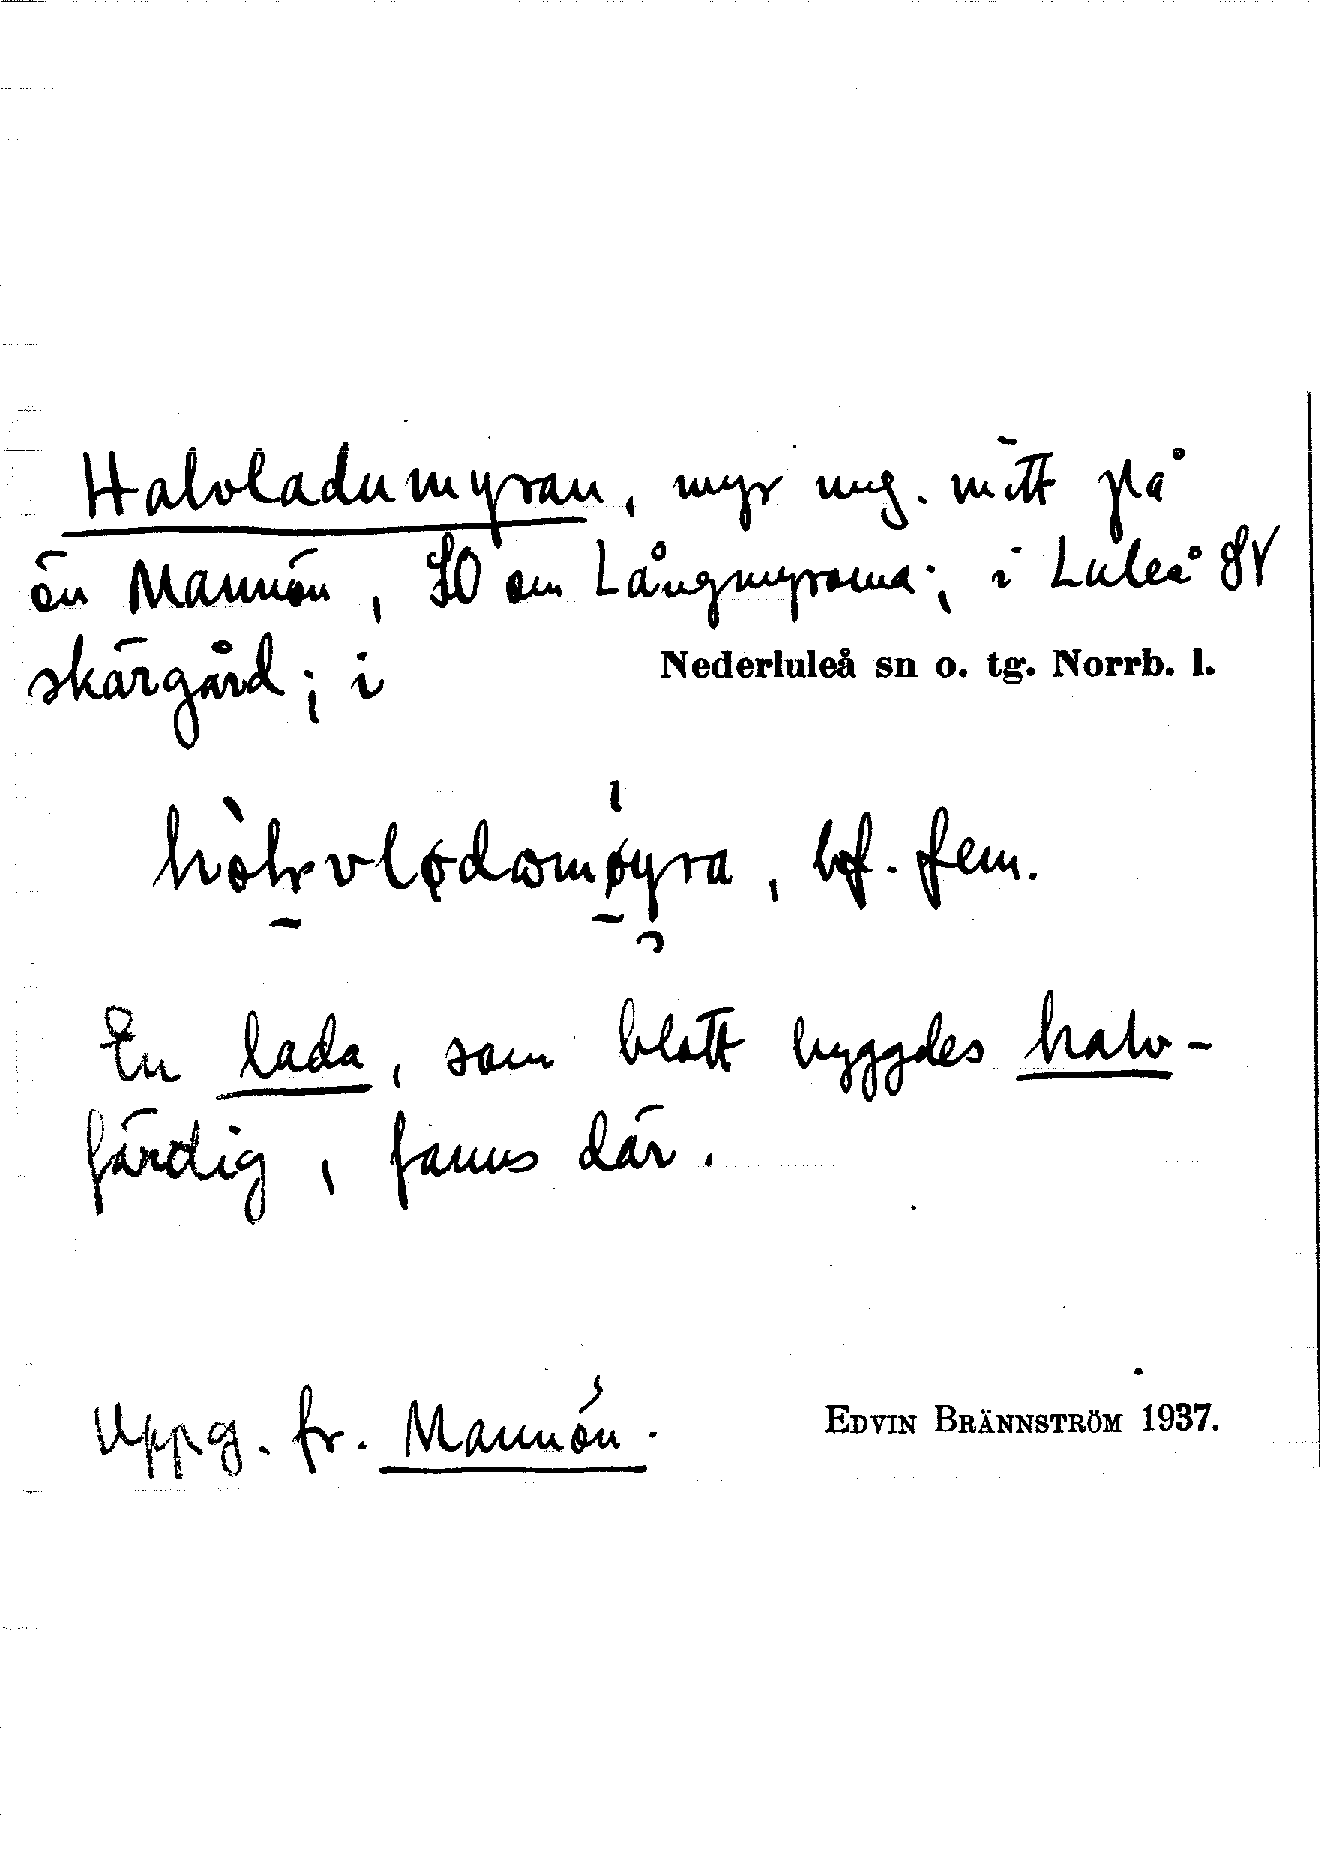 Halvladumyran, myr ung. mitt på
ön Mannön, SO om Långmyrorna; i Luleå SV
skärgård; i Nederluleå sn o. tg. Norrb. l.
bf. fem.
En lada, som blott byggdes halv-
färdig, fanns där.
Uppg. fr. Mannön. EDVIN BRÄNNSTRÖM 1937.